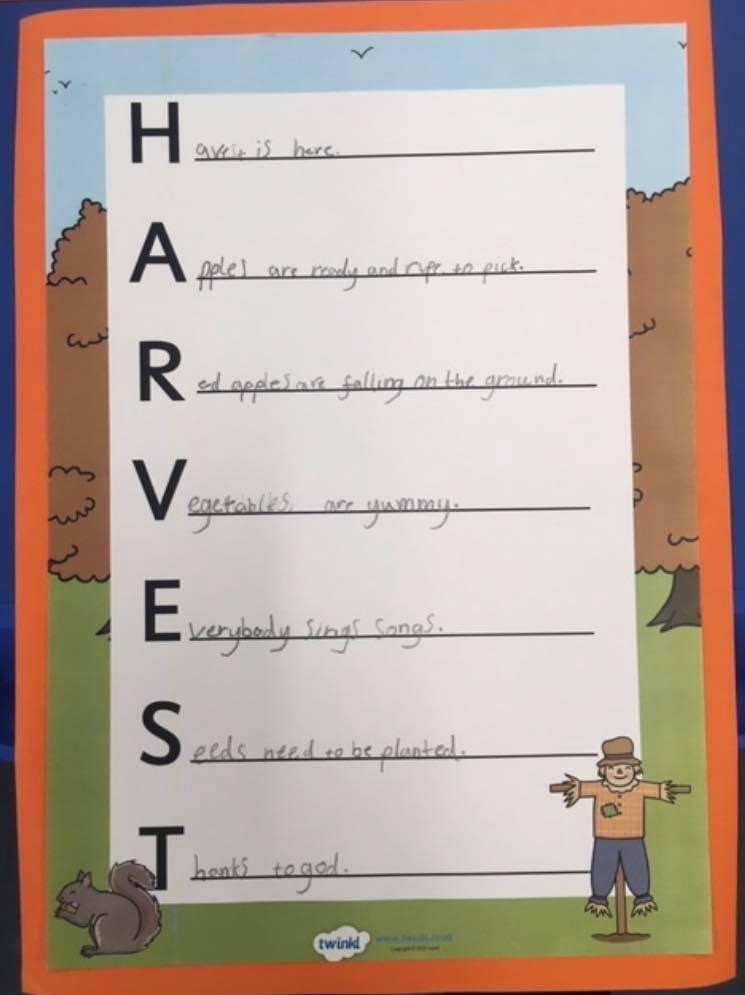 Havest is here.
Apples are ready and ripe to pick.
Red apples are falling on the ground.
Vegetables are yummy.
Everybody sings songs.
Seeds need to be planted.
Thanks to god.
twinkl www.twinkl.co.uk